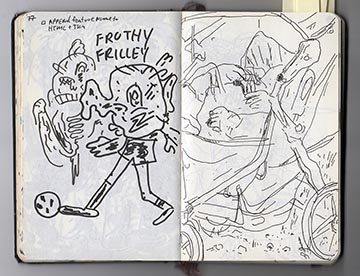 77
□ APPEND feature name to
HTML + This
FROTHY
FRILLEY